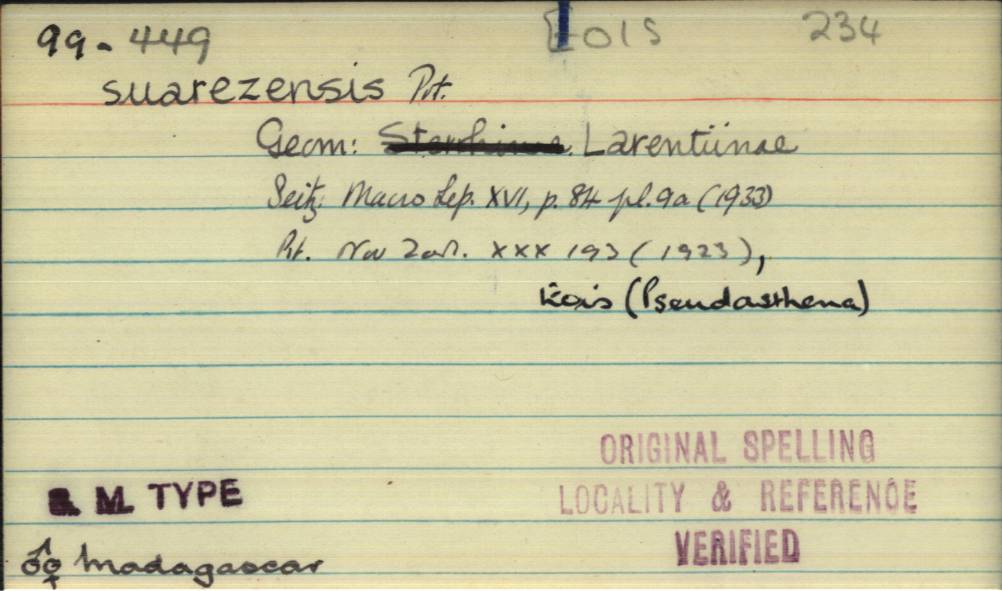 99-449 Eois 234
suarezensis Prt.
Geom: Sterrhinae Larentiinae
Seitz, Macro Lep. XVI, p. 84 pl. 9a (1933)
Prt. Nov Zool. XXX 193 (1923),
Eois (Pseudasthena)
ORIGINAL SPELLING
LOCALITY & REFERENCE
VERIFIED
B. M. TYPE
♂♀ Madagascar